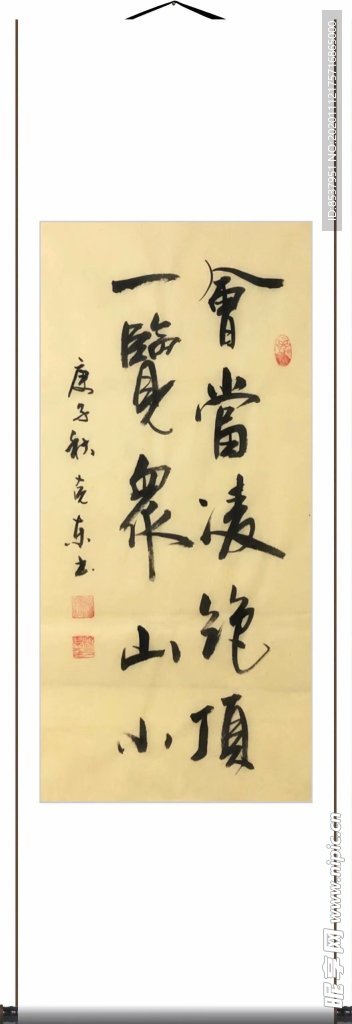 會當凌絕頂
一覽衆山小
庚子秋克東书
ID:8537951 NO:20201112175716865000
昵享网 www.nipic.cn